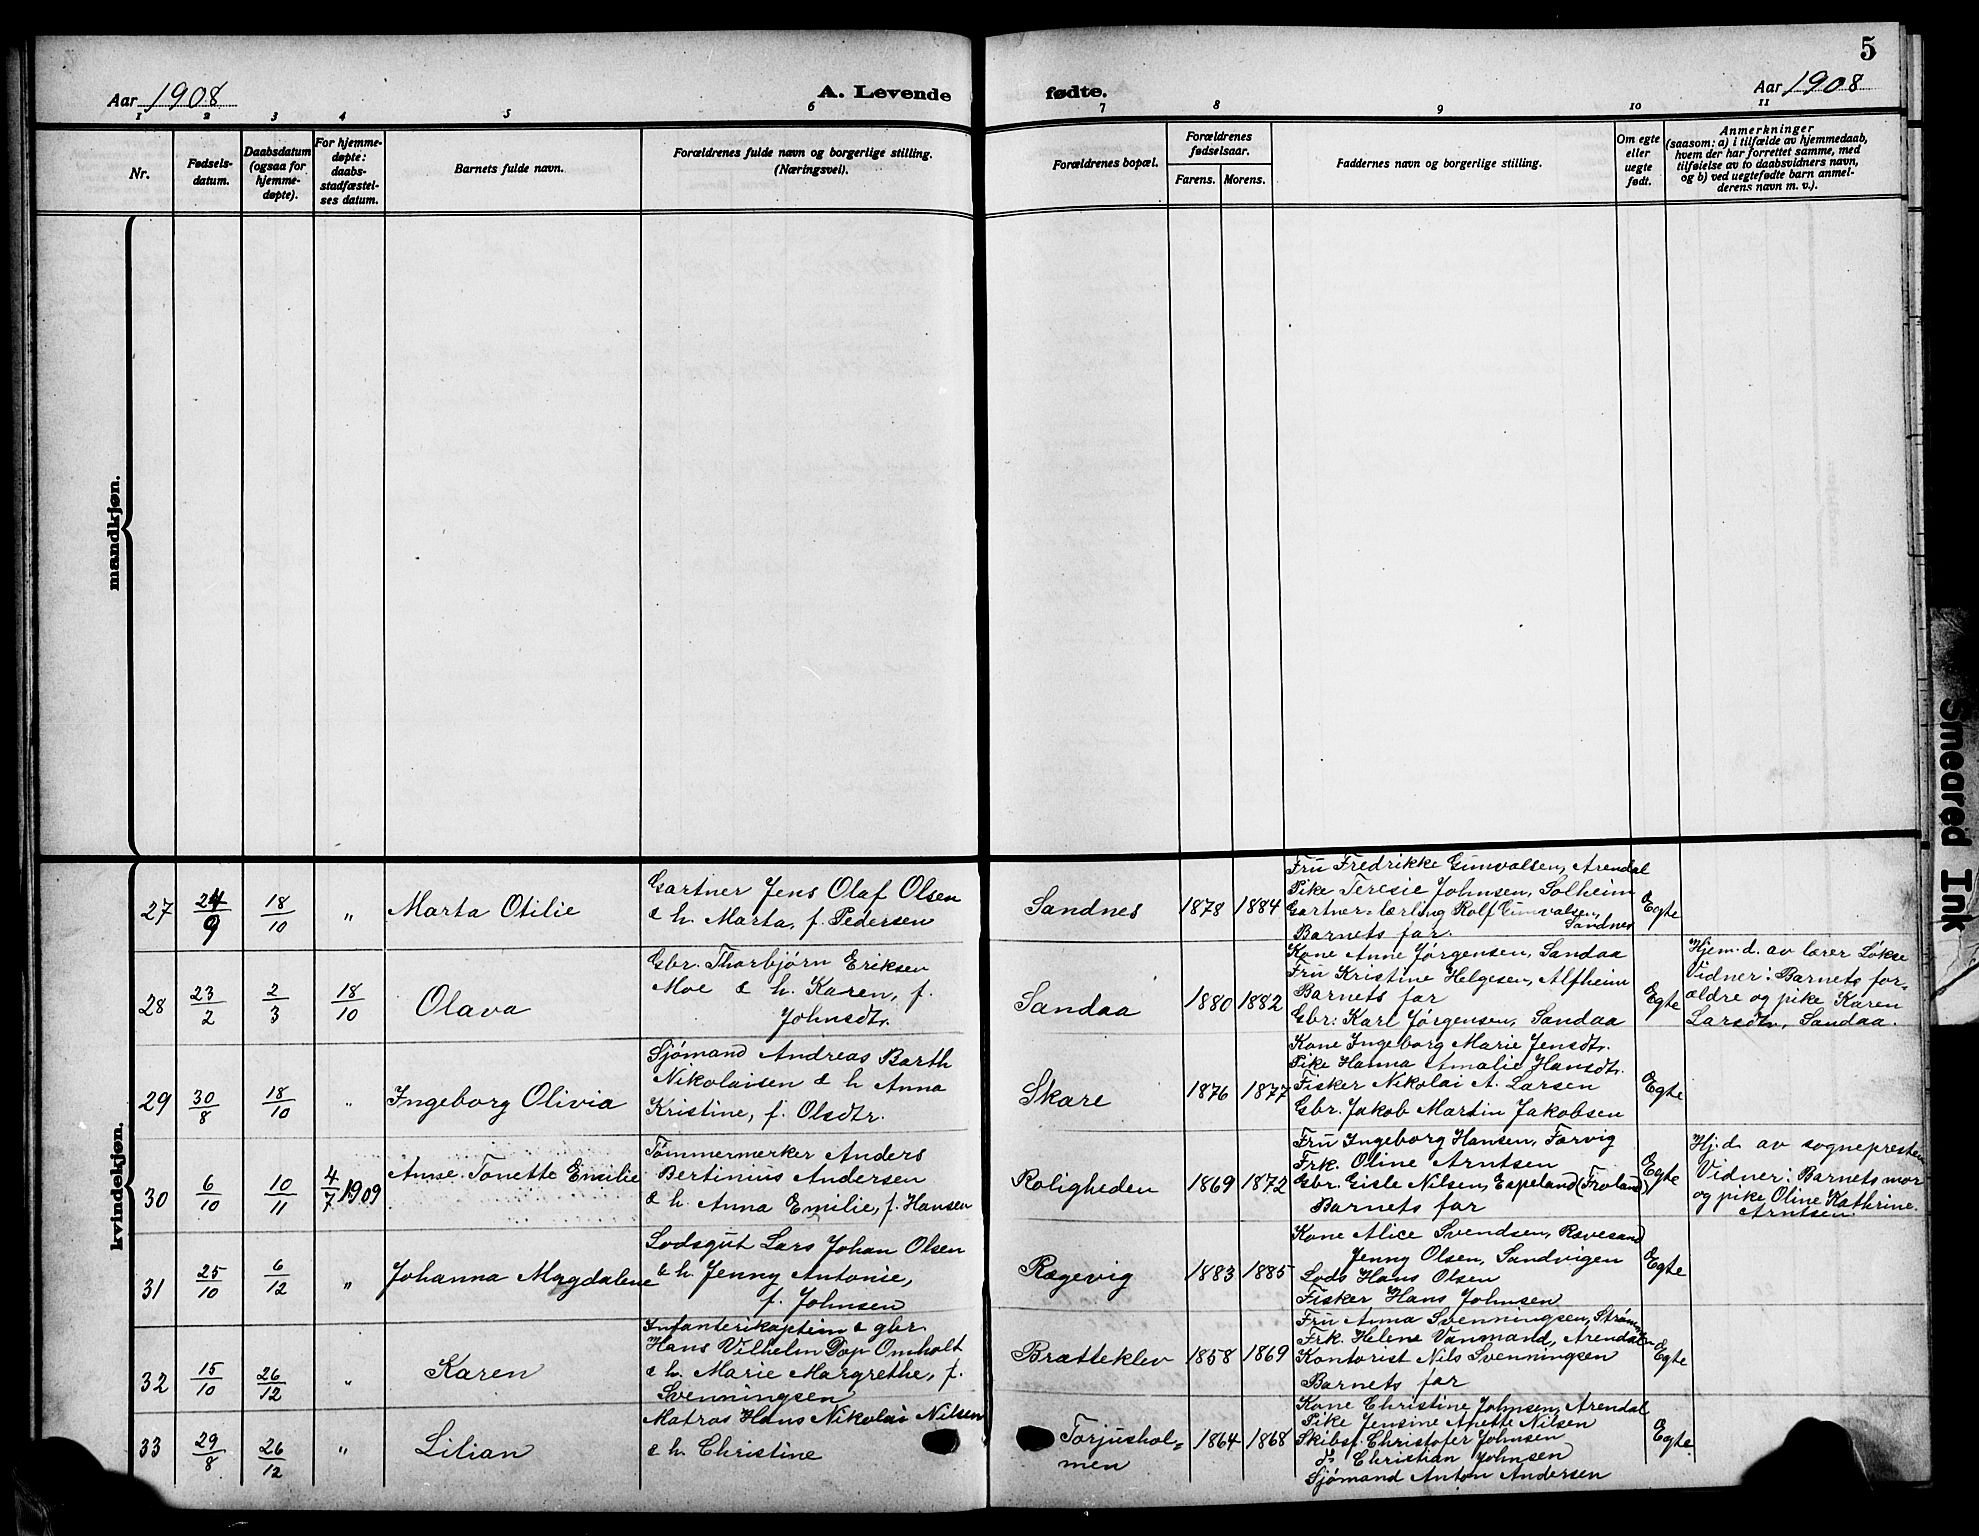 5
Aar 1908
A. Levende fødte.
Aar 1908
1 2 3 4 5 6 7 8 9 10 11
Nr.
Fødsels-
datum.
Daabsdatum
(ogsaa for
hjemme-
døpte).
For hjemme-
døpte:
daabs-
stadfæstel-
ses datum.
Barnets fulde navn.
Forældrenes fulde navn og borgerlige stilling.
(Næringsvei).
Forældrenes bopæl.
Forældrenes
fødselsaar.
Farens. Morens.
Faddernes navn og borgerlige stilling.
Om egte
eller
uegte
født.
Anmerkninger
(saasom: a) i tilfælde av hjemmedaab,
hvem der har forrettet samme, med
tilføielse av to daabsvidners navn,
og b) ved uegtefødte barn anmel-
derens navn m. v.).
mandkjøn.
kvindekjøn.
27
24/9
18/10
"
Marta Otilie
Gartner Jens Olaf Olsen
& h. Marta, f. Pedersen
Sandnes
1878 1884
Fru Fredrikke Gunvalsen, Arendal
Pike Teresie Johnsen, Solheim
Gartner-lærling Rolf Gunvalsen,
Sandnes
Barnets far.
Egte
28
23/2
2/3
18/10
Olava
Gbr. Thorbjørn Eriksen
Moe & h. Karen, f.
Johnsdtr.
Sandaa
1880 1882
Kone Anne Jørgensen, Sandaa
Fru Kristine Helgesen, Alfheim
Barnets far
Gbr: Karl Jørgensen, Sandaa
Egte
Hjem.d. av lærer Løkse
Vidner: Barnets for-
ældre og pike Karen
Larsdtr, Sandaa.
29
30/8
18/10
"
Ingeborg Olivia
Sjømand Andreas Barth
Nikolaisen & h Anna
Kristine, f. Olsdtr.
Skare
1876 1877
Kone Ingeborg Marie Jensdtr.
Pike Hanna Amalie Hansdtr.
Fisker Nikolai A. Larsen
Gbr. Jakob Martin Jakobsen
Egte
30
6/10
10/11
4/7 1909
Anne Tonette Emilie
Tømmermerker Anders
Bertinius Andersen
& h. Anna Emilie, f. Hansen
Roligheden
1869 1872
Fru Ingeborg Hansen, Torvig
Frk. Oline Arntsen
Gbr. Gisle Nilsen, Espeland (Froland)
Barnets far
Egte
Hj.d. av sognepresten
Vidner: Barnets mor
og pike Oline Kathrine
Arntsen.
31
25/10
6/12
"
Johanna Magdalene
Lodsgut Lars Johan Olsen
& h. Jenny Antonie,
f. Johnsen
Rægevig
1883 1885
Kone Alice Svendsen, Rævesand
Jenny Olsen, Sandvigen
Lods Hans Olsen
Fisker Hans Johnsen
Egte
32
15/10
26/12
"
Karen
Infanterikaptein & gbr.
Hans Vilhelm Dop Omholt
& h. Marie Margrethe, f.
Svenningsen
Brætteklev
1858 1869
Fru Anna Svenningsen,
Frk. Helene Vanmand, Arendal
Kontorist Nils Svenningsen
Barnets far
Egte
33
29/8
26/12
"
Lilian
Matros Hans Nikolai Nilsen
& h. Christine
Torjushol-
men
1864 1868
Kone Christine Johnsen, Arendal
Pike Jensine Anette Nilsen
Skibsf. Christofer Johnsen
Christian Johnsen
Sjømand Anton Andersen
Egte
Smeared Ink